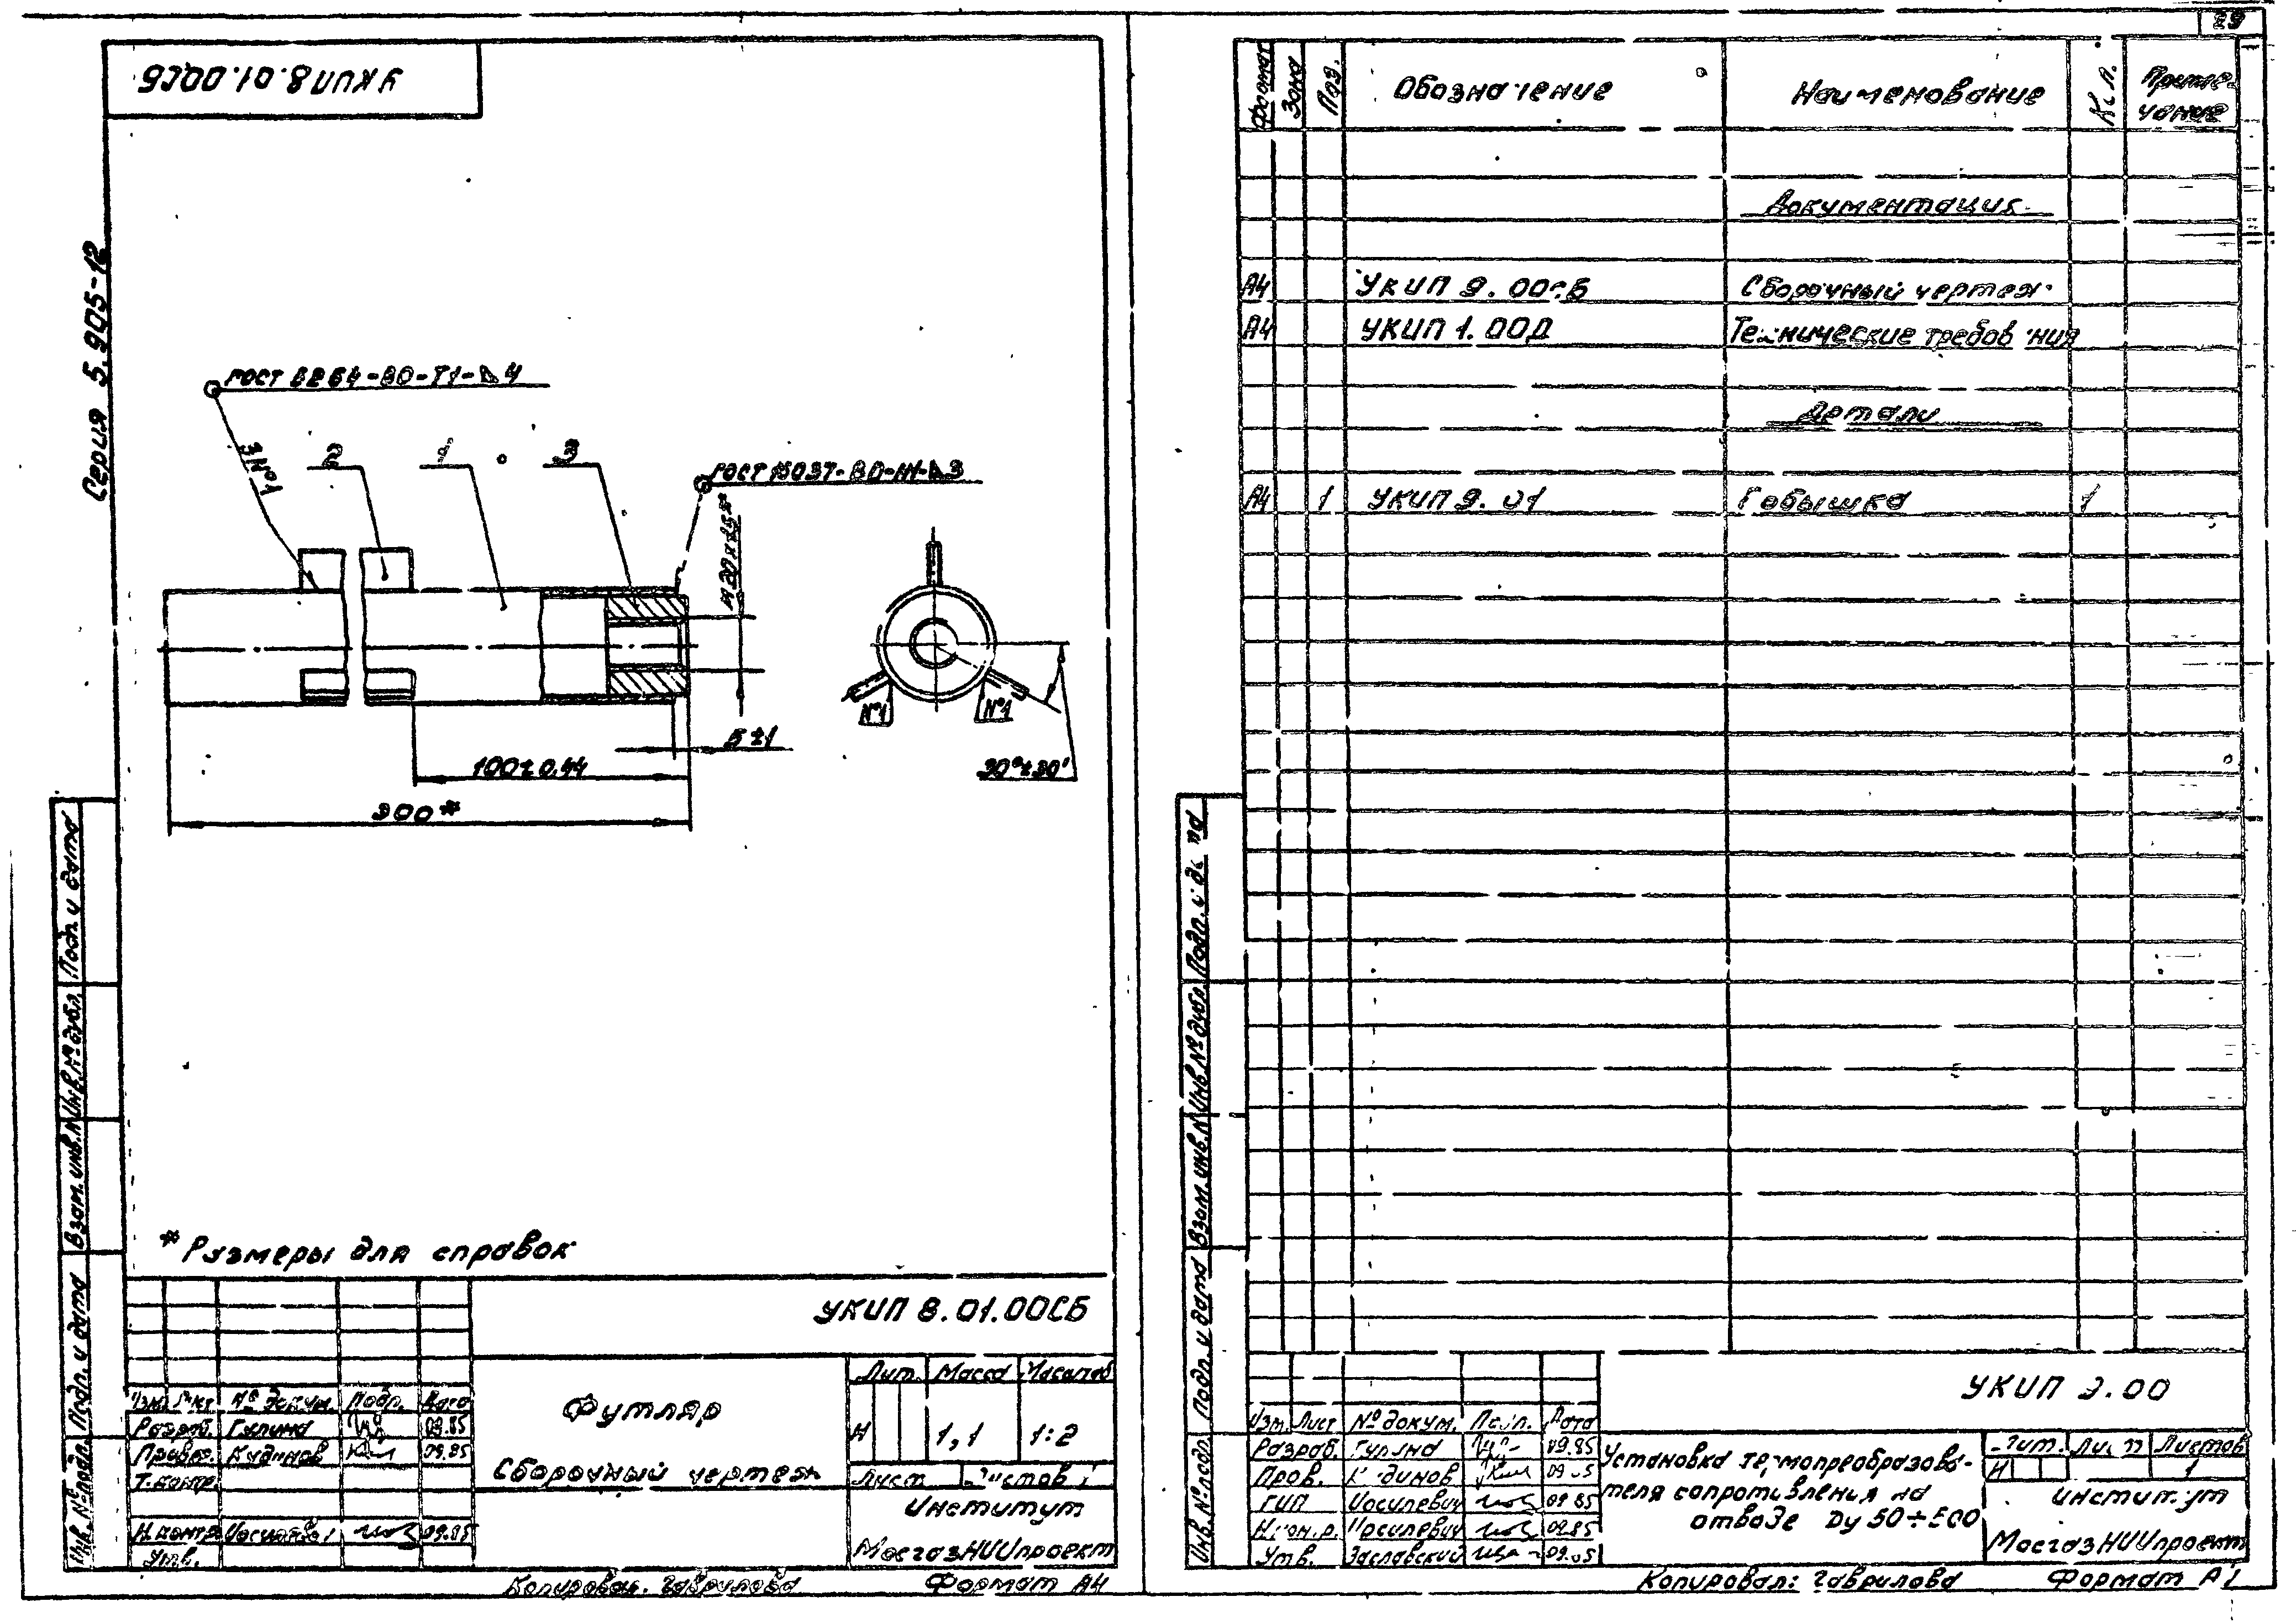 УКИП 8.01.00СБ
Серия 5.905-12
ГОСТ 5264-80-Т1-4
№1
2
1
3
ГОСТ 16037-80-3
5±1
100±0,44
300*
№1
№1
30°±30'
* Размеры для справок
Подп. и дата
Инв. № дубл.
Взам. инв. №
Подп. и дата
Инв. № подл.
УКИП 8.01.00СБ
Футляр
Сборочный чертеж
Лит. Масса Масштаб
И 1,1 1:2
Лист Листов 1
Изм. Лист № докум. Подп. Дата
Разраб. Гулина 09.85
Провер. Кудинов 09.85
Т. контр.
Н. контр. Иосилевич 09.85
Утв.
Институт
МосгазНИИпроект
Копировал: Гаврилова Формат А4
29
Формат Зона Поз. Обозначение Наименование Кол. Примечание
Документация
А4 УКИП 9.00СБ Сборочный чертеж
А4 УКИП 1.00Д Технические требования
Детали
А4 1 УКИП 9.01 Бобышка 1
Подп. и дата
Инв. № дубл.
Взам. инв. №
Подп. и дата
Инв. № подл.
УКИП 9.00
Изм. Лист № докум. Подп. Дата
Разраб. Гулина 09.85
Пров. Кудинов 09.85
ГИП Иосилевич 09.85
Н. контр. Иосилевич 09.85
Утв. Заславский 09.85
Установка термопреобразова-
теля сопротивления на
отводе Ду 50÷500
Лит. Лист Листов
И 1
Институт
МосгазНИИпроект
Копировал: Гаврилова Формат